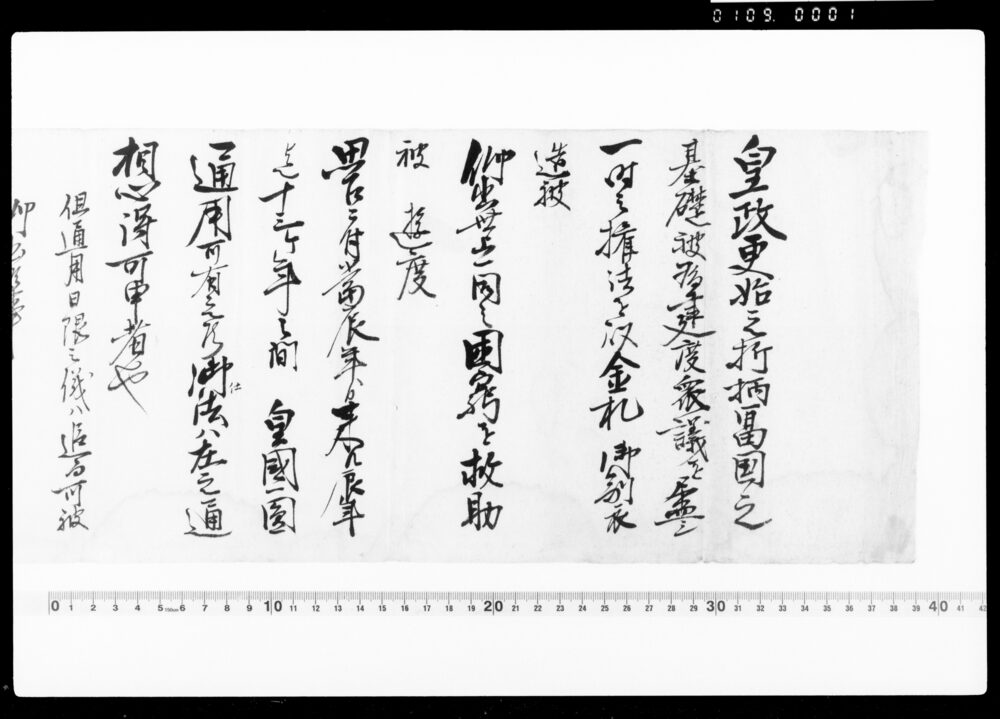 0109. 0001
皇政更始之折柄富国之
基礎被為建度衆議を尽シ
一時之権法を以金札御製衣
造被
仰出世上一同之困窮を救助
被遊度
思召ニ付当辰年ゟ来ル辰年
迄十三ヶ年之間 皇國一圓
通用可有之乃御仕法ハ左之通
相心得可申者也
但通用日限之儀ハ追而可被
仰出候事
0 1 2 3 4 5 6 7 8 9 10 11 12 13 14 15 16 17 18 19 20 21 22 23 24 25 26 27 28 29 30 31 32 33 34 35 36 37 38 39 40 41 42